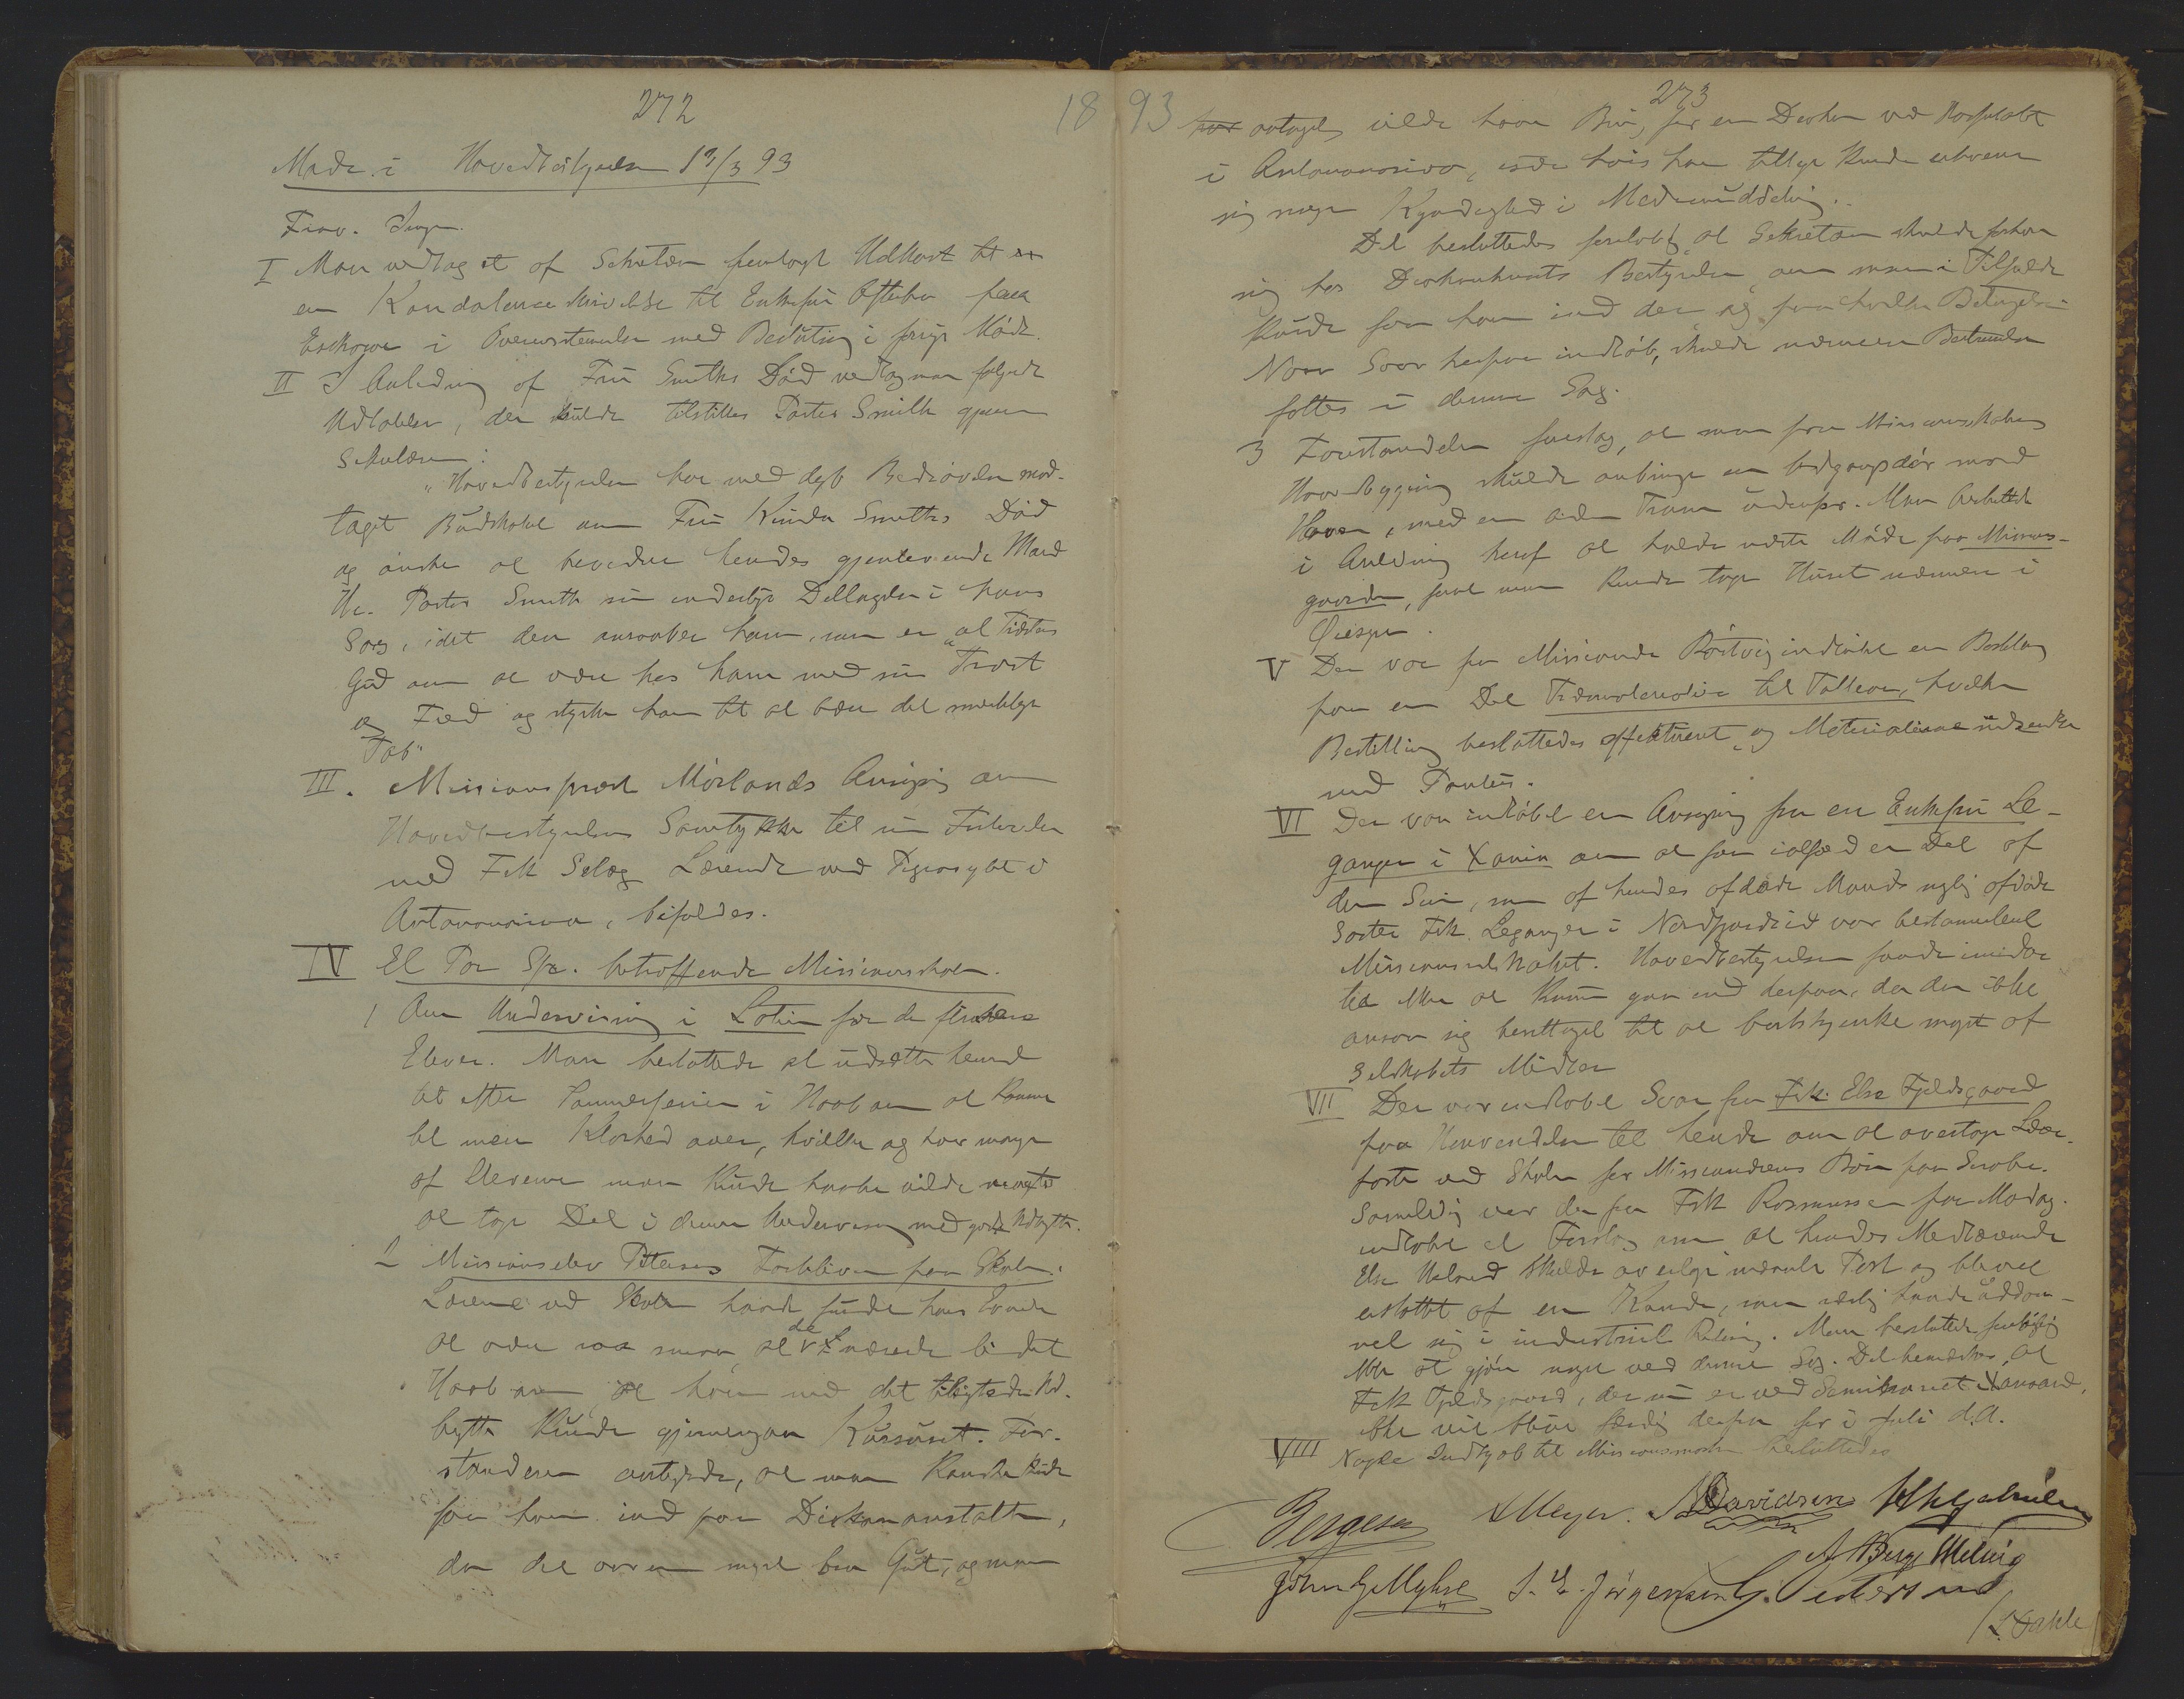 272
Møde i Hovedbestyrelsen 17/3 93
Frav. Ingen.
I Man vedtog et af Sekretæren fremlagt Udkast til
en Kondolence Skrivelse til Enkefru Oftebro paa
Eschowe i Overensstemmelse med Beslutning i forrige Møde.
II I Anledning af Fru Smiths Død vedtog man følgende
Udtalelse, der skulde tilstilles Pastor Smith gjennem
Sekretæren:
"Hovedbestyrelsen har med dyb Bedrøvelse mod-
taget Budskabet om Fru Smiths Død
og ønsker at bevidne hendes gjenlevende Mand
Hr. Pastor Smith sin inderlige Deltagelse i hans
Sorg, idet den anraaber ham, som er al Trøstens
Gud om at være hos ham med sin Trøst
og Fred og styrke ham til at bære det smertelige
Tab"
III. Missionsprest Mørlands Ansøgning om
Hovedbestyrelsens Samtykke til sin Forlovelse
med Frk Selag Lærerinde ved Pigeasylet i
Antananarivo, bifaldes.
IV Et Par Spr. betræffende Missionsskolen.
1 Om Undervisning i Latin for de flinkere
Elever. Man besluttede at udsætte hermed
til efter Sommerferien i Haab om at komme
til mere Klarhed over, hvilke og hvor mange
af Eleverne man kunde haabe vilde
at tage Del i denne Undervisning med godt Udbytte.
2 Missionselev Petersens Forbliven paa Skolen.
Lærerne ved Skolen havde fundet hans Evner
at være saa smaa, at de nærede lidet
Haab om, at han med det tilsigtede Ud-
bytte kunde gjennemgaa Kursuset. For-
standeren antydede, at man kanske kunde
faa ham ind paa Diakonanstalten,
da det var en meget bra Gut, og man
18 93
273
antagelig vilde have Brug for en Diakon ved Hospitalet
i Antananarivo, især hvis han tillige kunde erhverve
sig nogen Kyndighed i Medicinuddeling.
Det besluttedes foreløbig at Sekretæren skulde forhøre
sig hos Diakonhusets Bestyrelse, om man i Tilfælde
kunde faa ham ind der og paa hvilke Betingelser
Naar Svar herpaa indløb, skulde nærmere Bestemmelse
fattes i denne Sag.
3 Forstanderen foreslog, at man fra Missionsskolens
Hovedbygning skulde anbringe en Udgangsdør mod
Haven, med en liden Trap udenfor. Man besluttede
i Anledning heraf at holde næste Møde paa Missions-
gaarden, forat man kunde tage Huset nærmere i
Øiesyn.
V Der var fra Missionær Røstvig indløbet en Bestilling
paa en Del Træmaterialier til Tullear, hvilken
Bestilling besluttedes effektueret og Materialierne udsendte
med Paulus.
VI Der var indløbet en Ansøgning fra en Enkefru Le-
ganger i Xania om at faa ialfald en Del af
den Sum, som af hendes afdøde Mands nylig afdøde
Søster Frk. Leganger i Nordfjordeid var testamenteret
Missionsselskabet. Hovedbestyrelsen fandt imidler-
tid ikke at kunne gaa ind derpaa, da den ikke
ansaa sig berettiget til at bortskjenke noget af
Selskabets Midler
VII Der var indløbet Svar fra Frk. Else Fjeldsgaard
paa Henvendelse til hende om at overtage Lærer-
post ved Skolen for Missionærens Børn paa Sirabe.
Samtidig var der fra Frk Rasmussen paa Madag.
indløbet et Forslag om at hendes Medlærerinde
Else skulde overtage nævnte Post og blive
erstattet af en Kvinde, som særlig havde uddan-
net sig i industriel Retning. Man besluttede foreløbig
ikke at gjøre noget ved denne Sag. Det bemærkes, at
Frk Fjeldsgaard, der nu er ved Seminariet i Xansand,
ikke vil blive færdig derfra før i Juli d.A.
VIII Nogle Indkjøb til Missionsmarken besluttedes
Borgesen
Meyer. Davidsen
A. Berge Meling
John G. Myhre J. Chr. Jørgensen G. Pedersen
L. Dahle